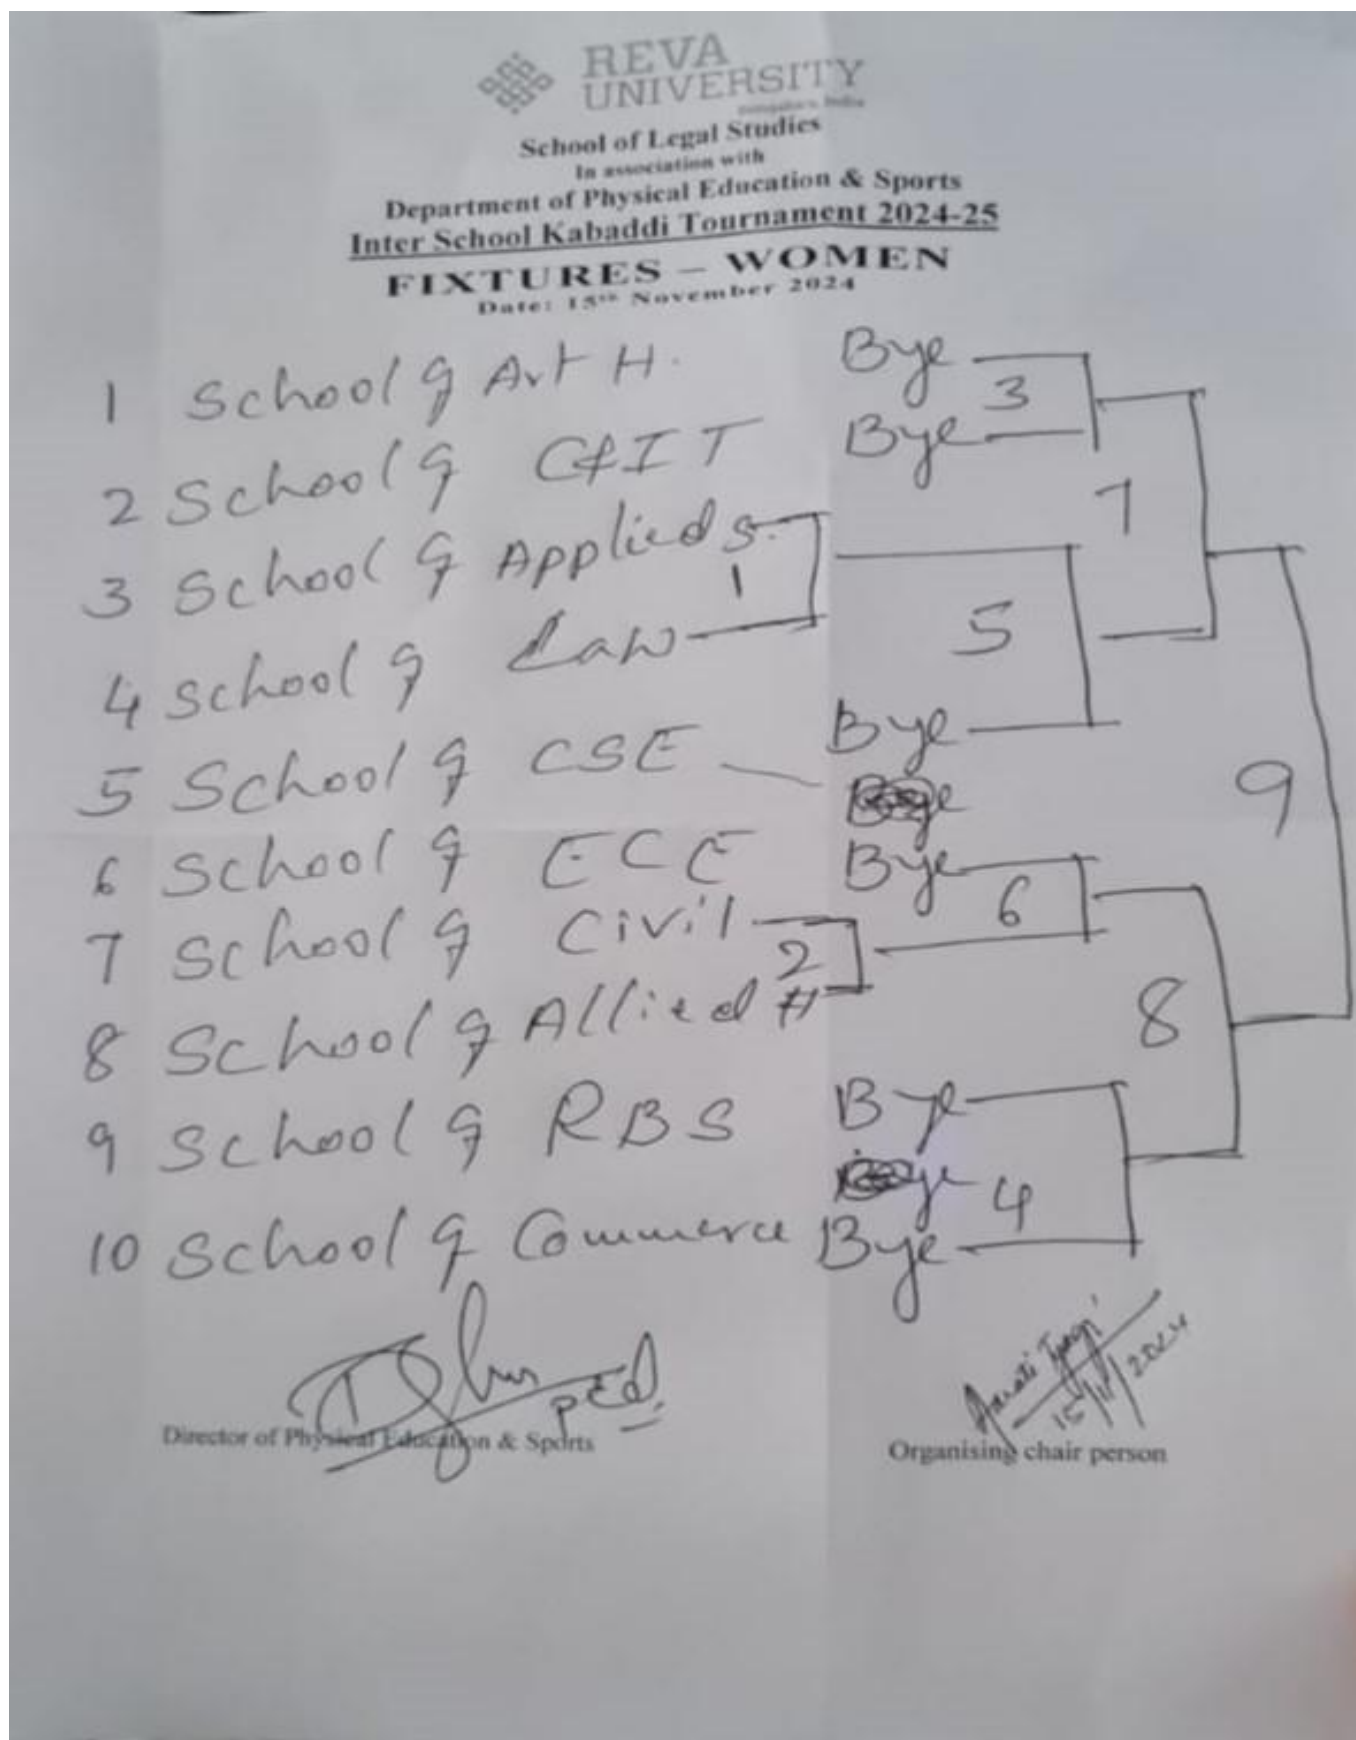 REVA
UNIVERSITY
Bengaluru, India
School of Legal Studies
In association with
Department of Physical Education & Sports
Inter School Kabaddi Tournament 2024-25
FIXTURES – WOMEN
Date: 15th November 2024
1 School of Art H. Bye
3
2 School of C&IT Bye
7
3 School of Applied S.
1
4 School of Law
5
5 School of CSE Bye
9
6 School of ECE Bye
6
7 School of Civil
2
8 School of Allied H
8
9 School of RBS Bye
4
10 School of Commerce Bye
P Ed.
Aarati Tyagi
15/11/2024
Director of Physical Education & Sports
Organising chair person